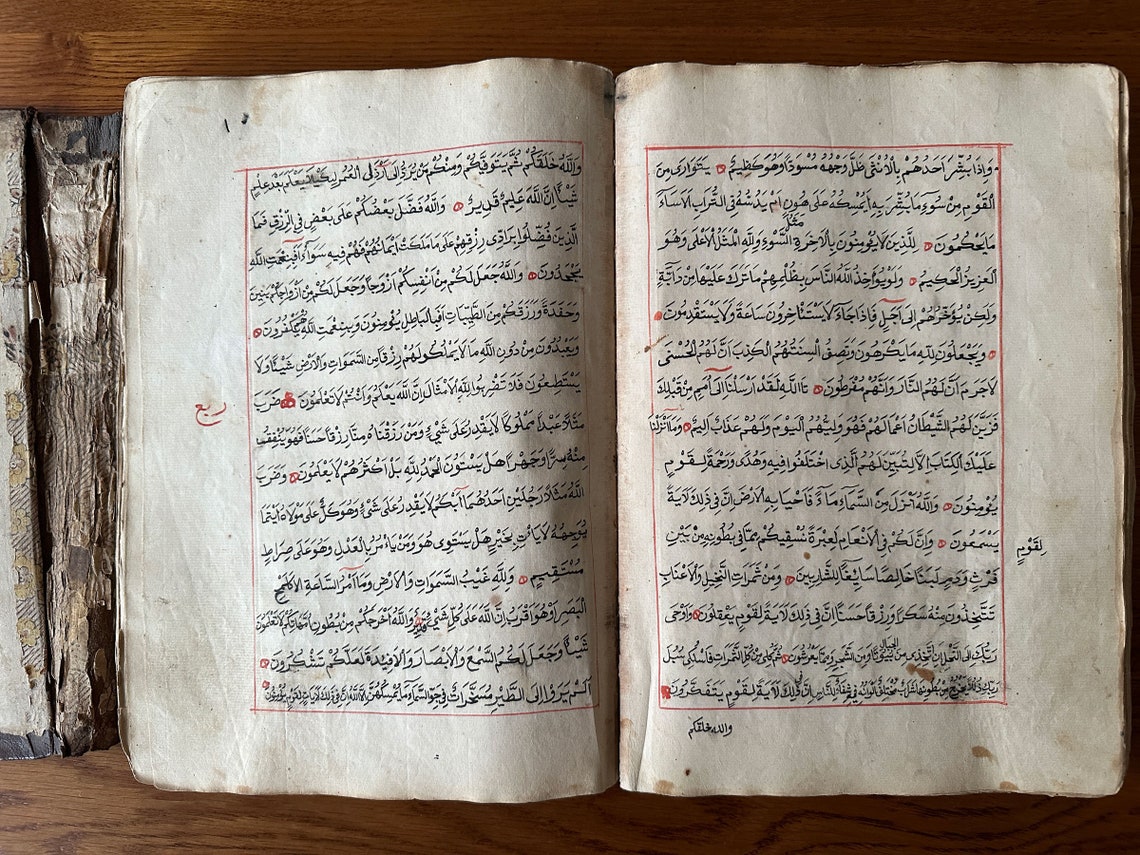 وَاِذَا بُشِّرَ اَحَدُهُمْ بِالْاُنْثٰى ظَلَّ وَجْهُهُ مُسْوَدًّا وَهُوَ كَظِيمٌ يَتَوَارٰى مِنَ
الْقَوْمِ مِنْ سُوۤءِ مَا بُشِّرَ بِهِ اَيُمْسِكُهُ عَلٰى هُونٍ اَمْ يَدُسُّهُ فِى التُّرَابِ اَلَا سَاۤءَ
مَا يَحْكُمُونَ لِلَّذِينَ لَا يُؤْمِنُونَ بِالْاٰخِرَةِ مَثَلُ السَّوْءِ وَلِلّٰهِ الْمَثَلُ الْاَعْلٰى وَهُوَ
الْعَزِيزُ الْحَكِيمُ وَلَوْ يُؤَاخِذُ اللّٰهُ النَّاسَ بِظُلْمِهِمْ مَا تَرَكَ عَلَيْهَا مِنْ دَاۤبَّةٍ
وَلٰكِنْ يُؤَخِّرُهُمْ اِلٰى اَجَلٍ فَاِذَا جَاۤءَ لَا يَسْتَأْخِرُونَ سَاعَةً وَلَا يَسْتَقْدِمُونَ
وَيَجْعَلُونَ لِلّٰهِ مَا يَكْرَهُونَ وَتَصِفُ اَلْسِنَتُهُمُ الْكَذِبَ اَنَّ لَهُمُ الْحُسْنٰى
لَا جَرَمَ اَنَّ لَهُمُ النَّارَ وَاَنَّهُمْ مُفْرَطُونَ تَاللّٰهِ لَقَدْ اَرْسَلْنَا اِلٰى اُمَمٍ مِنْ قَبْلِكَ
فَزَيَّنَ لَهُمُ الشَّيْطَانُ اَعْمَالَهُمْ فَهُوَ وَلِيُّهُمُ الْيَوْمَ وَلَهُمْ عَذَابٌ اَلِيمٌ وَمَا اَنْزَلْنَا
عَلَيْكَ الْكِتَابَ اِلَّا لِتُبَيِّنَ لَهُمُ الَّذِى اخْتَلَفُوا فِيهِ وَهُدًى وَرَحْمَةً لِقَوْمٍ
يُؤْمِنُونَ وَاللّٰهُ اَنْزَلَ مِنَ السَّمَاۤءِ مَاۤءً فَاَحْيَا بِهِ الْاَرْضَ اِنَّ فِى ذٰلِكَ لَاٰيَةً
لِقَوْمٍ
يَسْمَعُونَ وَاِنَّ لَكُمْ فِى الْاَنْعَامِ لَعِبْرَةً نُسْقِيكُمْ مِمَّا فِى بُطُونِهِ مِنْ بَيْنِ
فَرْثٍ وَدَمٍ لَبَنًا خَالِصًا سَاۤئِغًا لِلشَّارِبِينَ وَمِنْ ثَمَرَاتِ النَّخِيلِ وَالْاَعْنَابِ
تَتَّخِذُونَ مِنْهُ سَكَرًا وَرِزْقًا حَسَنًا اِنَّ فِى ذٰلِكَ لَاٰيَةً لِقَوْمٍ يَعْقِلُونَ وَاَوْحٰى
رَبُّكَ اِلَى النَّحْلِ اَنِ اتَّخِذِى مِنَ الْجِبَالِ بُيُوتًا وَمِنَ الشَّجَرِ وَمِمَّا يَعْرِشُونَ ثُمَّ كُلِى مِنْ كُلِّ الثَّمَرَاتِ فَاسْلُكِى سُبُلَ
رَبِّكِ ذُلُلًا يَخْرُجُ مِنْ بُطُونِهَا شَرَابٌ مُخْتَلِفٌ اَلْوَانُهُ فِيهِ شِفَاۤءٌ لِلنَّاسِ اِنَّ فِى ذٰلِكَ لَاٰيَةً لِقَوْمٍ يَتَفَكَّرُونَ
والله خلقكم
وَاللّٰهُ خَلَقَكُمْ ثُمَّ يَتَوَفّٰيكُمْ وَمِنْكُمْ مَنْ يُرَدُّ اِلٰى اَرْذَلِ الْعُمُرِ لِكَيْلَا يَعْلَمَ بَعْدَ عِلْمٍ
شَيْئًا اِنَّ اللّٰهَ عَلِيمٌ قَدِيرٌ وَاللّٰهُ فَضَّلَ بَعْضَكُمْ عَلٰى بَعْضٍ فِى الرِّزْقِ فَمَا
الَّذِينَ فُضِّلُوا بِرَاۤدِّى رِزْقِهِمْ عَلٰى مَا مَلَكَتْ اَيْمَانُهُمْ فَهُمْ فِيهِ سَوَاۤءٌ اَفَبِنِعْمَتِ اللّٰهِ
يَجْحَدُونَ وَاللّٰهُ جَعَلَ لَكُمْ مِنْ اَنْفُسِكُمْ اَزْوَاجًا وَجَعَلَ لَكُمْ مِنْ اَزْوَاجِكُمْ بَنِينَ
وَحَفَدَةً وَرَزَقَكُمْ مِنَ الطَّيِّبَاتِ اَفَبِالْبَاطِلِ يُؤْمِنُونَ وَبِنِعْمَتِ اللّٰهِ هُمْ يَكْفُرُونَ
وَيَعْبُدُونَ مِنْ دُونِ اللّٰهِ مَا لَا يَمْلِكُ لَهُمْ رِزْقًا مِنَ السَّمٰوَاتِ وَالْاَرْضِ شَيْئًا وَلَا
يَسْتَطِيعُونَ فَلَا تَضْرِبُوا لِلّٰهِ الْاَمْثَالَ اِنَّ اللّٰهَ يَعْلَمُ وَاَنْتُمْ لَا تَعْلَمُونَ ضَرَبَ
ربع
مَثَلًا عَبْدًا مَمْلُوكًا لَا يَقْدِرُ عَلٰى شَىْءٍ وَمَنْ رَزَقْنَاهُ مِنَّا رِزْقًا حَسَنًا فَهُوَ يُنْفِقُ
مِنْهُ سِرًّا وَجَهْرًا هَلْ يَسْتَوُونَ الْحَمْدُ لِلّٰهِ بَلْ اَكْثَرُهُمْ لَا يَعْلَمُونَ وَضَرَبَ
اللّٰهُ مَثَلًا رَجُلَيْنِ اَحَدُهُمَا اَبْكَمُ لَا يَقْدِرُ عَلٰى شَىْءٍ وَهُوَ كَلٌّ عَلٰى مَوْلَاهُ اَيْنَمَا
يُوَجِّهْهُ لَا يَأْتِ بِخَيْرٍ هَلْ يَسْتَوِى هُوَ وَمَنْ يَأْمُرُ بِالْعَدْلِ وَهُوَ عَلٰى صِرَاطٍ
مُسْتَقِيمٍ وَلِلّٰهِ غَيْبُ السَّمٰوَاتِ وَالْاَرْضِ وَمَا اَمْرُ السَّاعَةِ اِلَّا كَلَمْحِ
الْبَصَرِ اَوْ هُوَ اَقْرَبُ اِنَّ اللّٰهَ عَلٰى كُلِّ شَىْءٍ قَدِيرٌ وَاللّٰهُ اَخْرَجَكُمْ مِنْ بُطُونِ اُمَّهَاتِكُمْ لَا تَعْلَمُونَ
شَيْئًا وَجَعَلَ لَكُمُ السَّمْعَ وَالْاَبْصَارَ وَالْاَفْئِدَةَ لَعَلَّكُمْ تَشْكُرُونَ
اَلَمْ يَرَوْا اِلَى الطَّيْرِ مُسَخَّرَاتٍ فِى جَوِّ السَّمَاۤءِ مَا يُمْسِكُهُنَّ اِلَّا اللّٰهُ اِنَّ فِى ذٰلِكَ لَاٰيَاتٍ لِقَوْمٍ يُؤْمِنُونَ